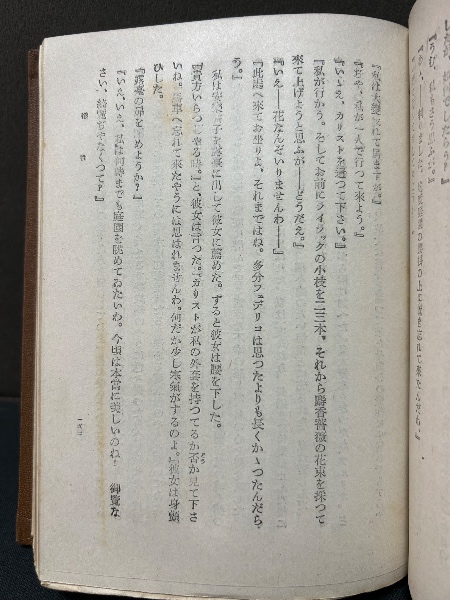 『私は大變疲れて居ますが。』
『ぢや、私が一人で行つて來よう。』
『いゝえ、カリストを遣つて下さい。』
『私が行かう。そしてお前にライラックの小枝を二三本。それから麝香薔薇の花束を採つて
來て上げようと思ふが──どうだえ。』
『いえ──花なんぞいりませんわ──』
『此處へ來てお坐りよ、それまではね。多分フェデリコは思つたよりも長くかゝつたんだら
う。』
私は安樂椅子を露臺に出して彼女に薦めた。すると彼女は腰を下した。
『貴方いらつしやる時。』と、彼女は言つた。『カリストが私の外套を持つてるか否か見て下さ
いね。馬車へ忘れて來たやうには思はれませんわ。何だか少し寒氣がするのよ。』彼女は身顫
ひした。
『露臺の扉を閉めようか？』
『いゝえ、いゝえ、私は何時までも庭園を眺めてゐたいわ。今頃は本當に美しいのね！　御覽な
さい、綺麗ぢやなくつて？』
犧牲
一八三